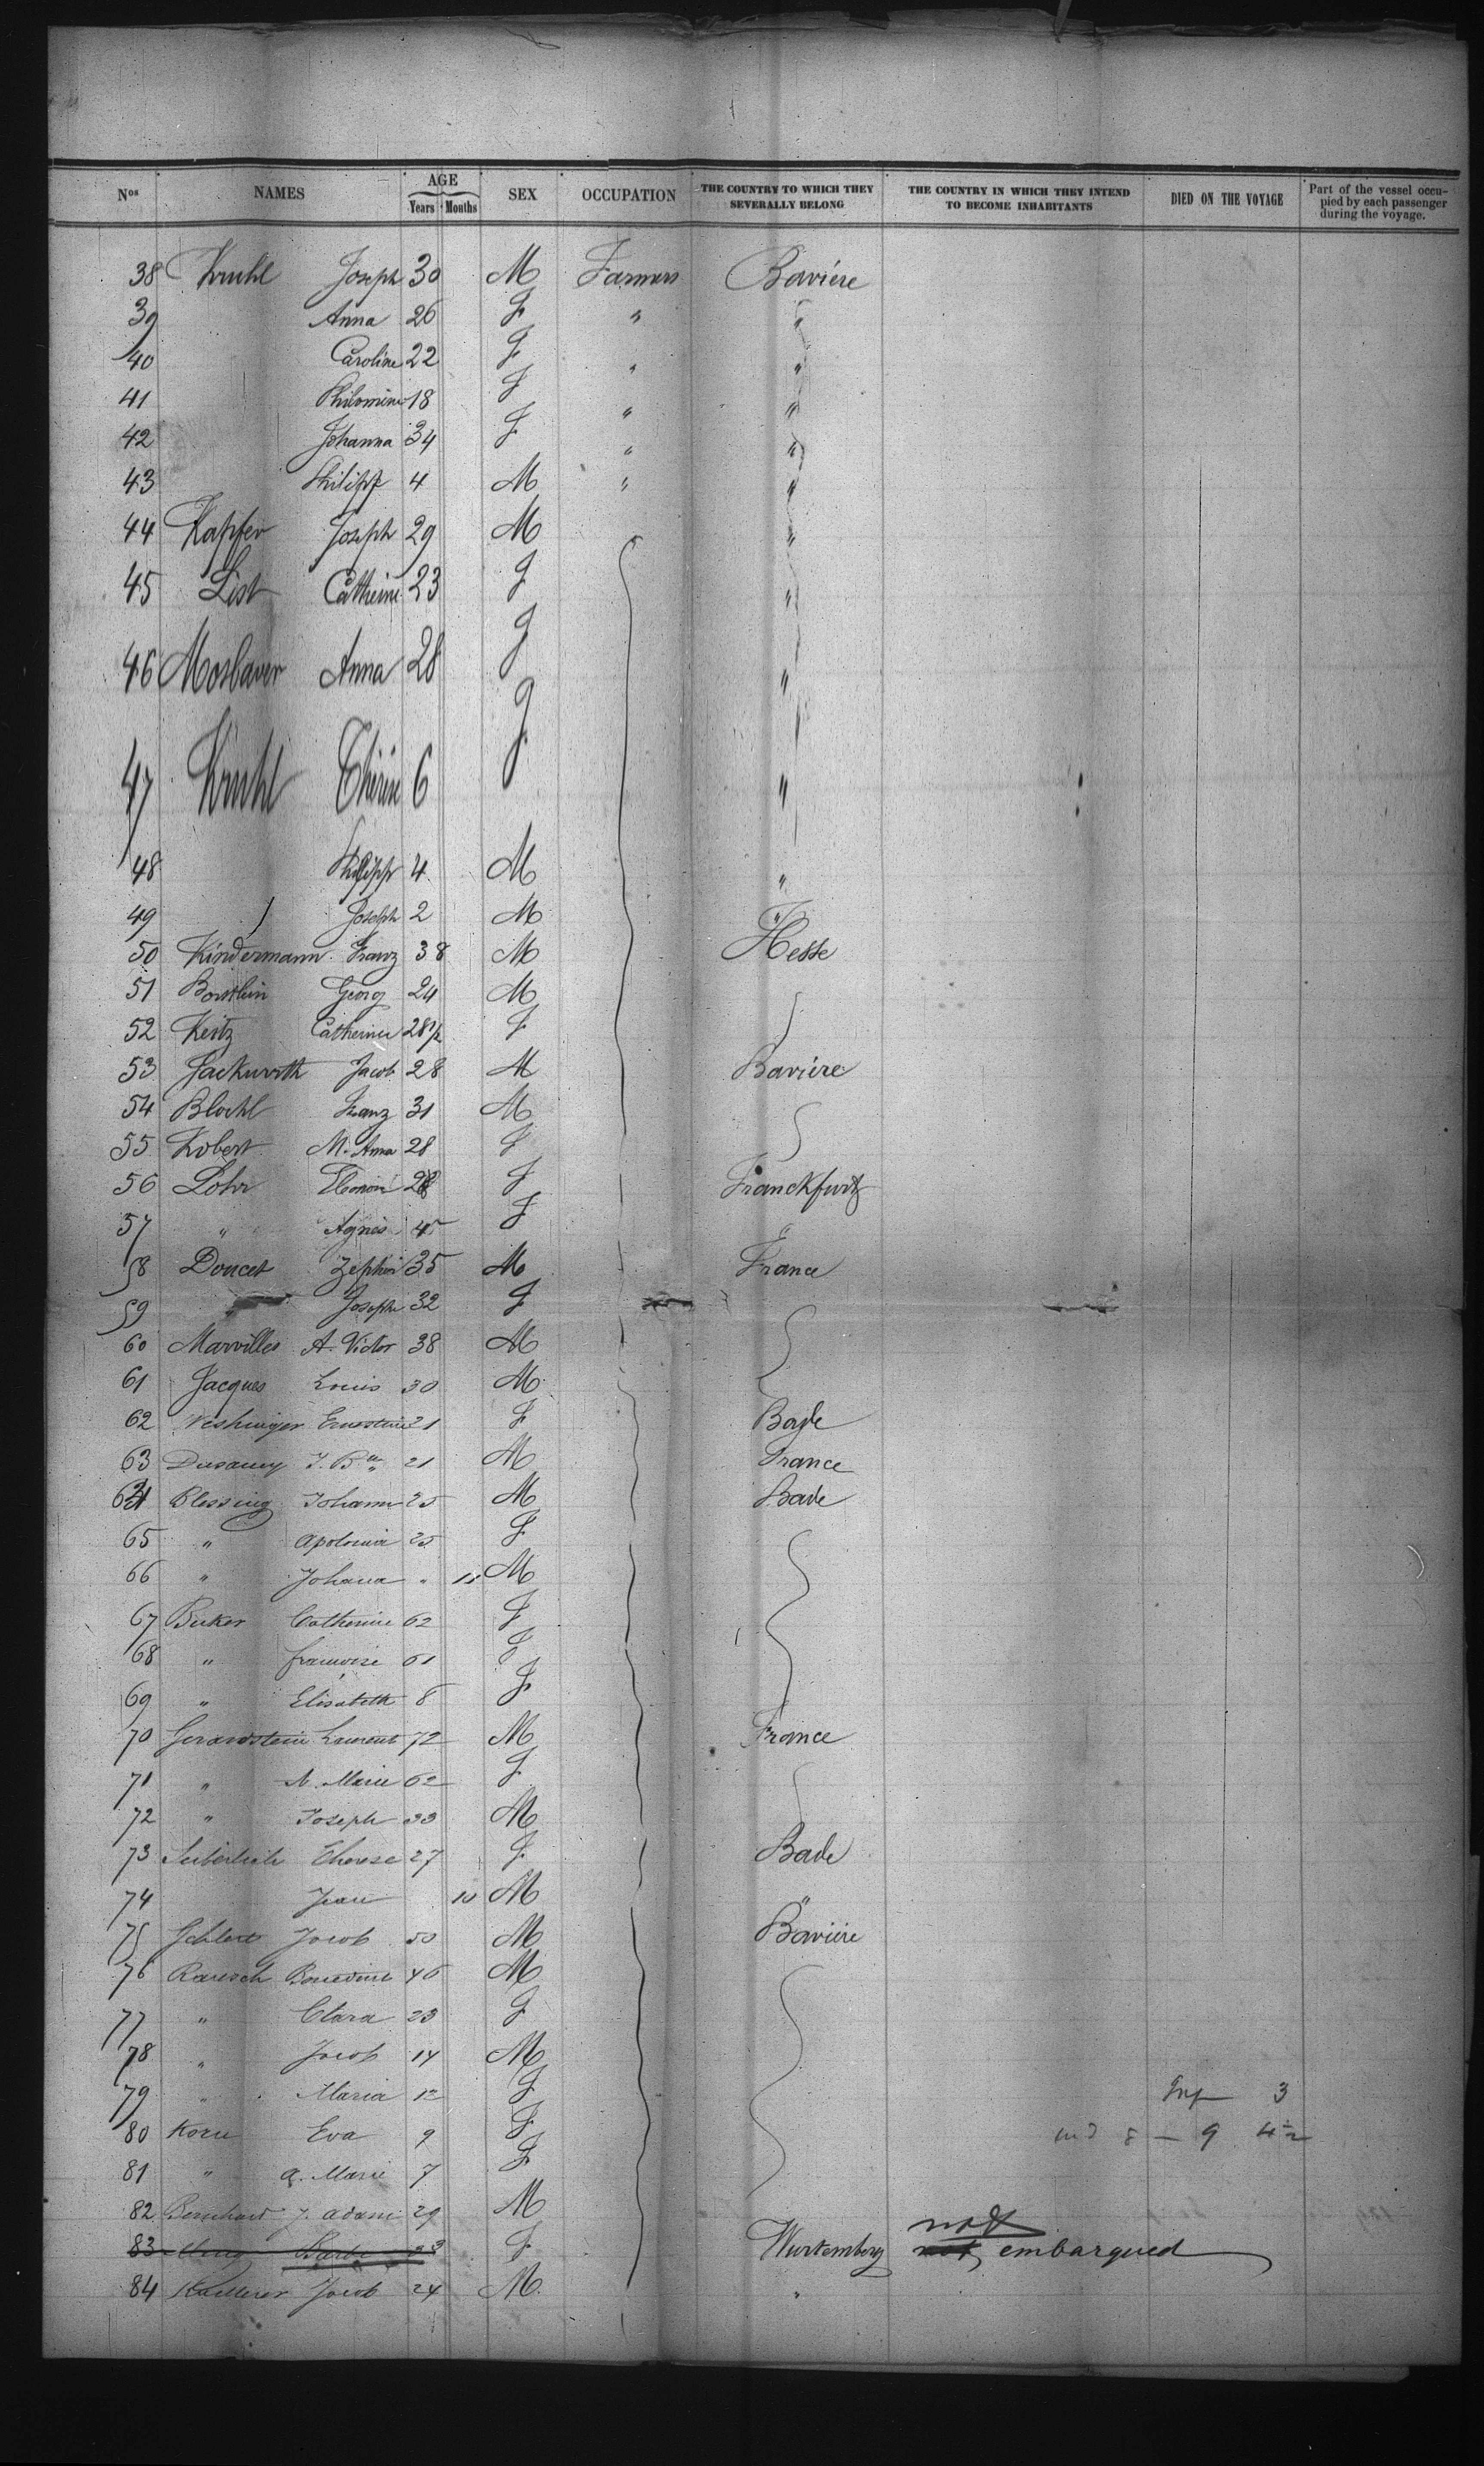 Nos NAMES AGE Years Months SEX OCCUPATION THE COUNTRY TO WHICH THEY SEVERALLY BELONG THE COUNTRY IN WHICH THEY INTEND TO BECOME INHABITANTS DIED ON THE VOYAGE Part of the vessel occupied by each passenger during the voyage.
38 Kruhl Joseph 30 M Farmers Bavière
39 Anna 26 F " "
40 Caroline 22 F " "
41 Philomine 18 F " "
42 Johanna 34 F " "
43 Philipp 4 M " "
44 Kapfer Joseph 29 M "
45 List Catherine 23 F "
46 Mosbauer Anna 28 F "
47 Kruhl Thérèse 6 F "
48 Philipp 4 M "
49 Joseph 2 M "
50 Kindermann Franz 38 M Hesse
51 Georg 24 M
52 Keitz Catherine 28 1/2 F
53 Jacob 28 M Bavière
54 Blochl Franz 31 M
55 Kobert M. Anna 28 F
56 Lohr 28 F Franckfurt
57 " Agnes 45 F "
58 Doucet Zephir 35 M France
59 " Joseph 32 F
60 Marvilles A. Victor 38 M
61 Jacques Louis 30 M
62 Ernestine 21 F Bade
63 J. B. 21 M France
64 Blessing Johann 25 M Bade
65 " Apolonia 25 F
66 " Johana " 11 M
67 Catherine 62 F
68 " 61 F
69 " Elisabeth 8 F
70 Laurent 72 M France
71 " M. Marie 62 F
72 " Joseph 33 M
73 Therese 27 F Bade
74 Jean 10 M "
75 Jacob 50 M Bavière
76 Rausch 46 M
77 " Clara 23 F
78 " Jacob 14 M
79 " Maria 12 F 3
80 Korn Eva 9 F 8 — 9 4 1/2
81 " A. Marie 7 F
82 Bernhard J. Adam 29 M
83 23 F Wurtemberg not not embarqued
84 Jacob 24 M "